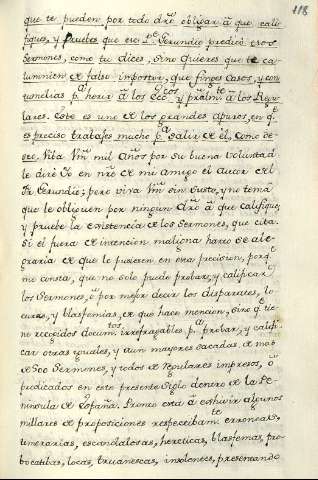 118
que te pueden por todo dro. obligar à que, cali
fiques, y Pruebes que ese Pe. Gerundio predicò esos
Sermones, como tu dices, sino quieres que te ca
lumnien de falso impostor, que finges casos, y con
tumelias pa. herir à los Eccos. y pralmte. à los Regu
lares. Este es uno de los grandes apuros, en qe.
es preciso trabajes mucho pa. salir de èl, Como de
seo. Viva Vm. mil Años por su buena voluntad
le dirè Yo en nre. de mi Amigo el Autor del
Fr. Gerundio; pero viva Vm. sin susto, y no tema
que le obliguen por ningun dro. à que califique,
y pruebe la existencia de los Sermones, que cita.
Si èl fuera de intencion maligna harto se ale
graria de que le pusieran en esa precision, porqe.
me consta, que no solo puede probar, y calificar
los Sermones, ò por mejor decir los disparates, lo
curas, y blasfemias, de que hace mencion, sino qe. tie
ne recogidos documtos. irrefragables pa. probar, y califi
car otras yguales, y aun mayores sacadas de mas
de 500 Sermones, y todos de Regulares impresos, ò
predicados en este presente Siglo dentro de la Pe
ninsula de España. Pronto està à exhivir algunos
millares de proposiciones respectibamte. erroneas,
temerarias, escandalosas, hereticas, blasfemas, pro
bocatibas, locas, truanescas, insolentes, presentando